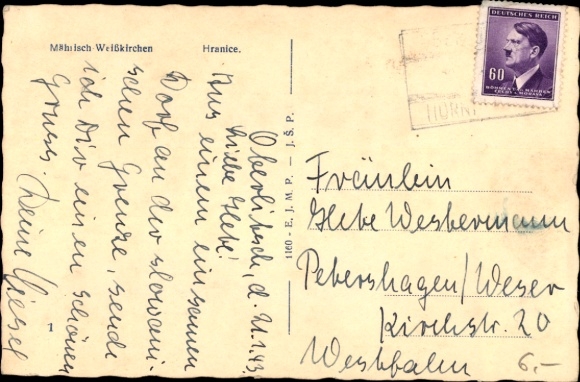 Mährisch-Weißkirchen Hranice.
Oberlitsch, d. 21.1.43.
Liebe Hebe!
Aus einem einsamen
Dorf an der slowaki-
schen Grenze, sende
ich Dir einen schönen
Gruss. Deine Liesel
1
1160 - E. J. M. P. — J. Š. P.
DEUTSCHES REICH
60
BÖHMEN U. MÄHREN
ČECHY A MORAVA
Fräulein
Hebe Westermann
Petershagen/Weser
Kirchstr. 20
Westfalen
6.-